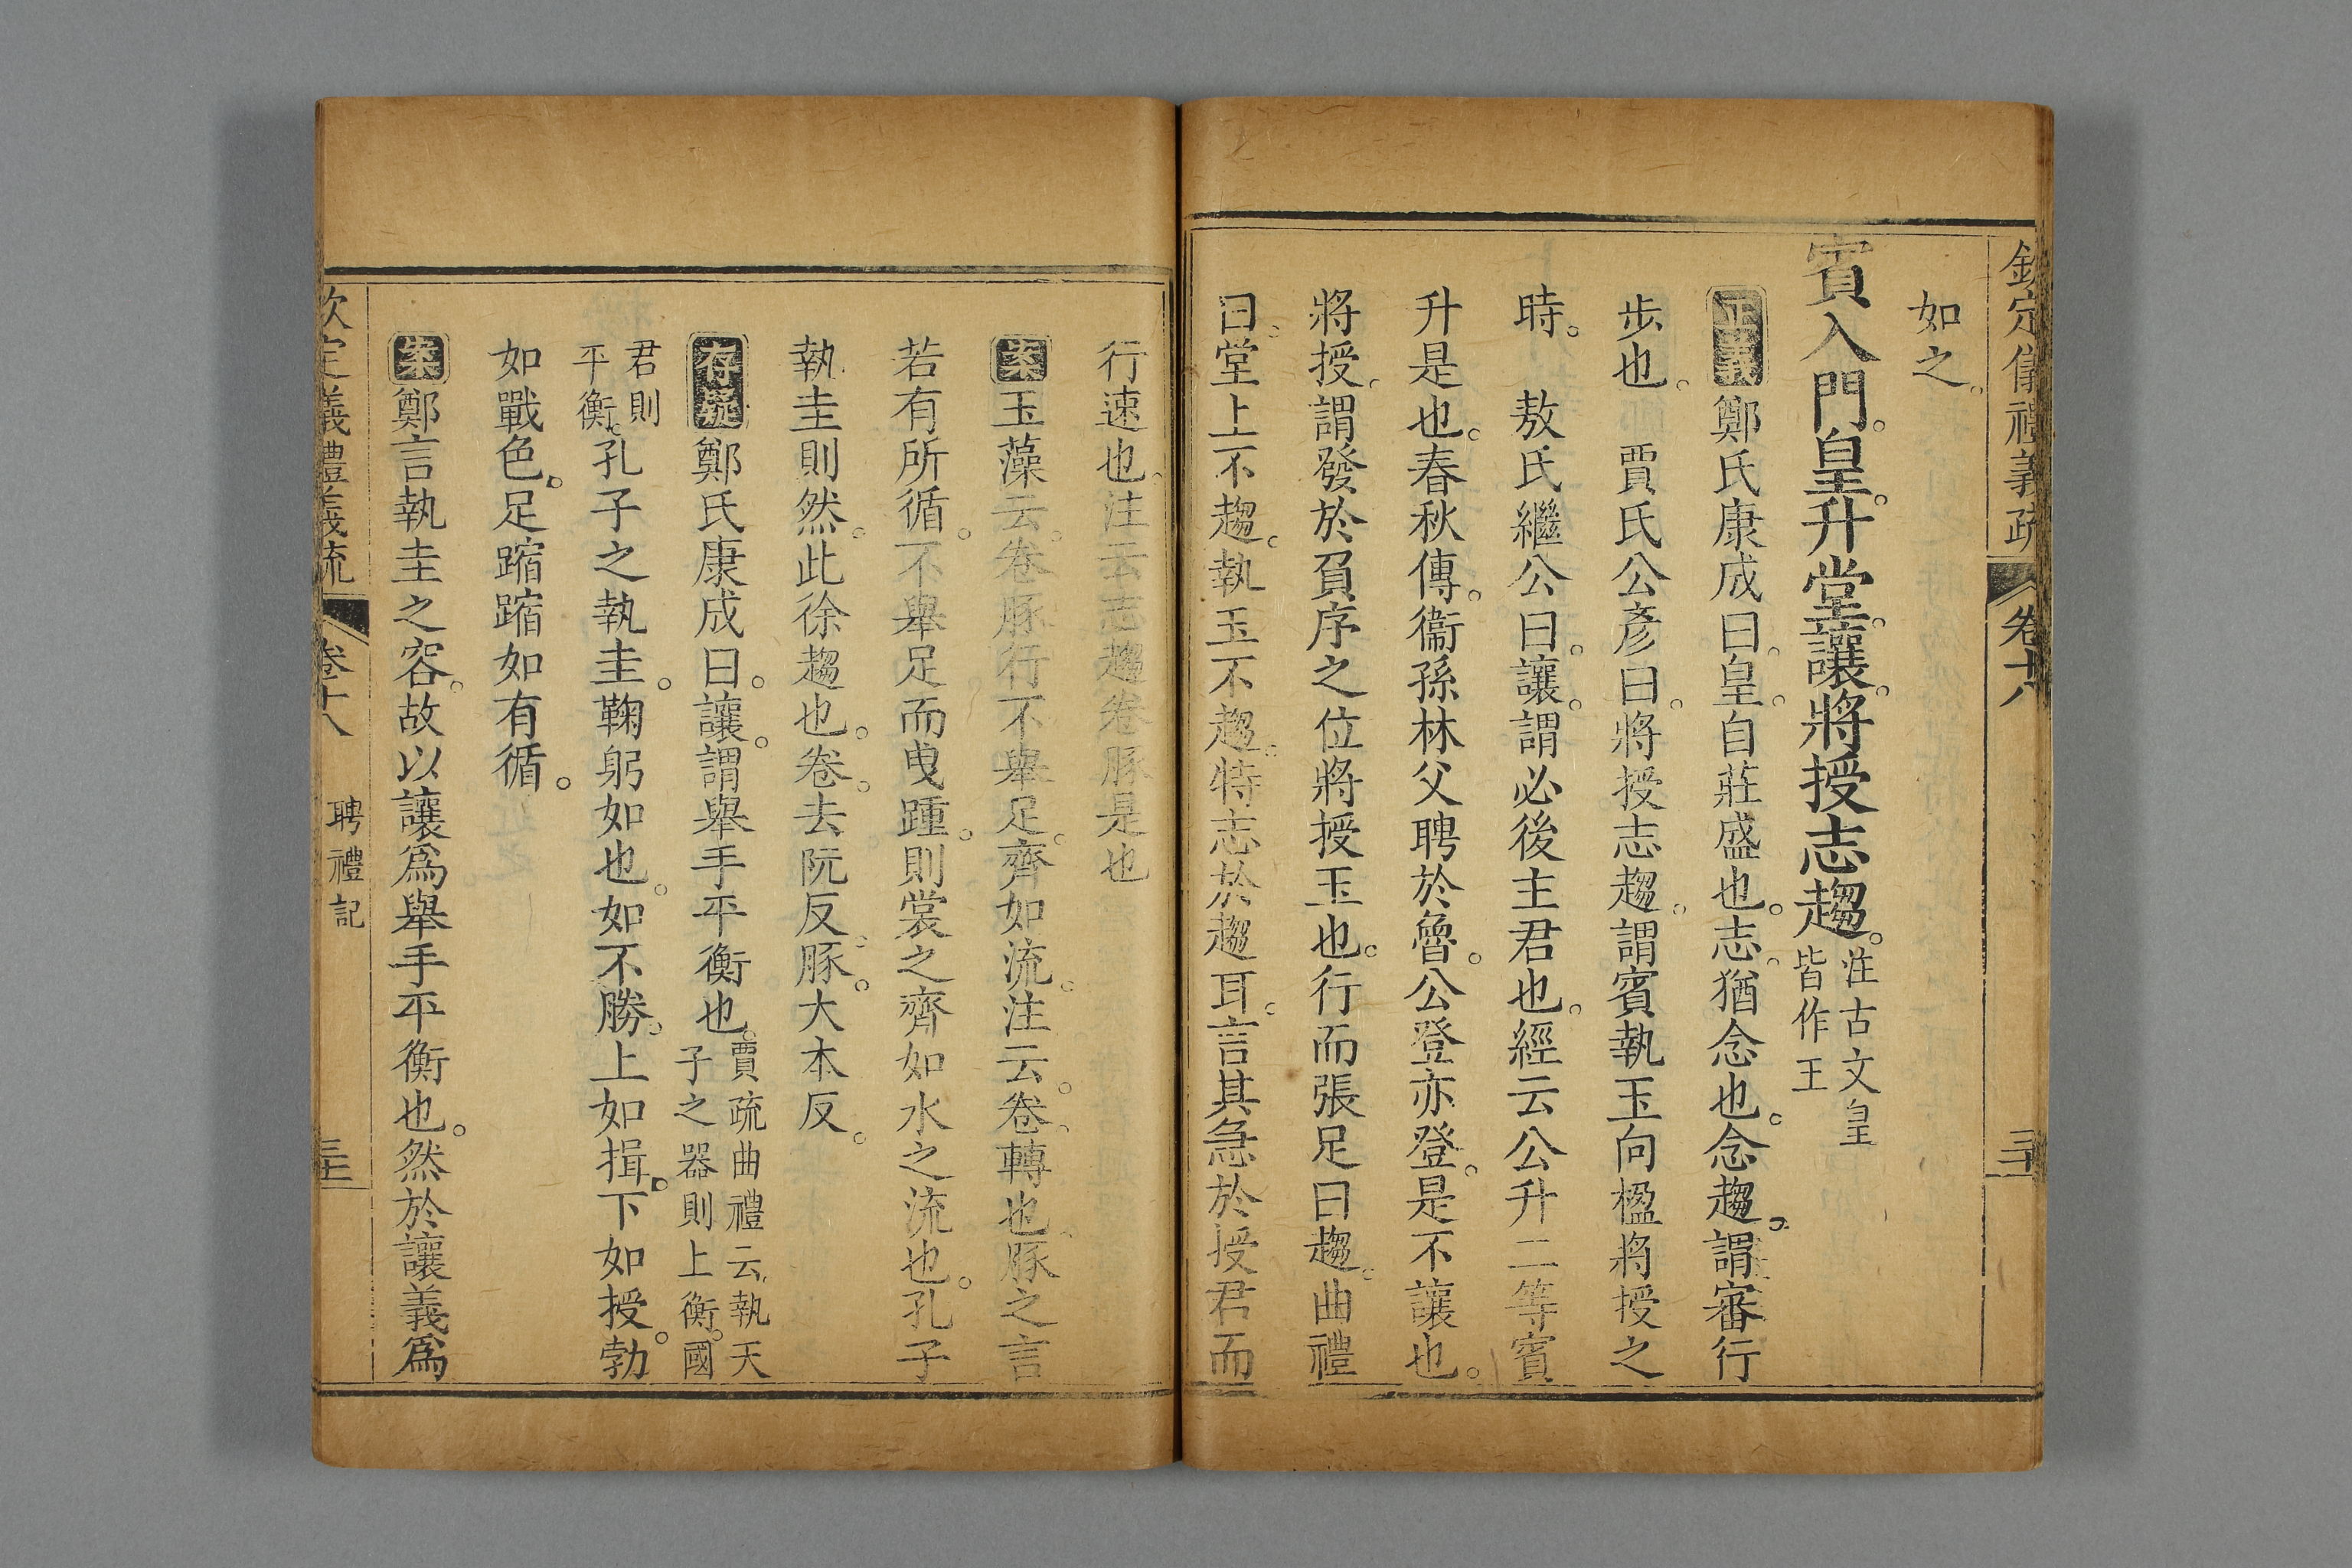 欽定儀禮義疏 卷十八 三十
如之。
賓入門。皇。升堂。讓。將授志趨。注古文皇皆作王
正義鄭氏康成曰。皇。自莊盛也。志。猶念也。念趨。謂審行
步也。 賈氏公彥曰。將授志趨。謂賓執玉向楹將授之
時。 敖氏繼公曰。讓。謂必後主君也。經云公升二等賓
升是也。春秋傳。衞孫林父聘於魯。公登亦登。是不讓也。
將授。謂發於負序之位將授玉也。行而張足曰趨。曲禮
曰。堂上不趨。執玉不趨。特志於趨耳。言其急於授君而
行速也。注云志趨卷豚是也
案玉藻云。卷豚行不舉足。齊如流。注云。卷。轉也。豚之言
若有所循。不舉足而曳踵。則裳之齊如水之流也。孔子
執圭則然。此徐趨也。卷。去阮反。豚。大本反。
存疑鄭氏康成曰。讓。謂舉手平衡也。賈疏曲禮云執天子之器則上衡。國
君則平衡。孔子之執圭。鞠躬如也。如不勝。上如揖。下如授。勃
如戰色。足蹜蹜如有循。
案鄭言執圭之容。故以讓爲舉手平衡也。然於讓義爲
欽定義禮義疏 卷十八 聘禮記